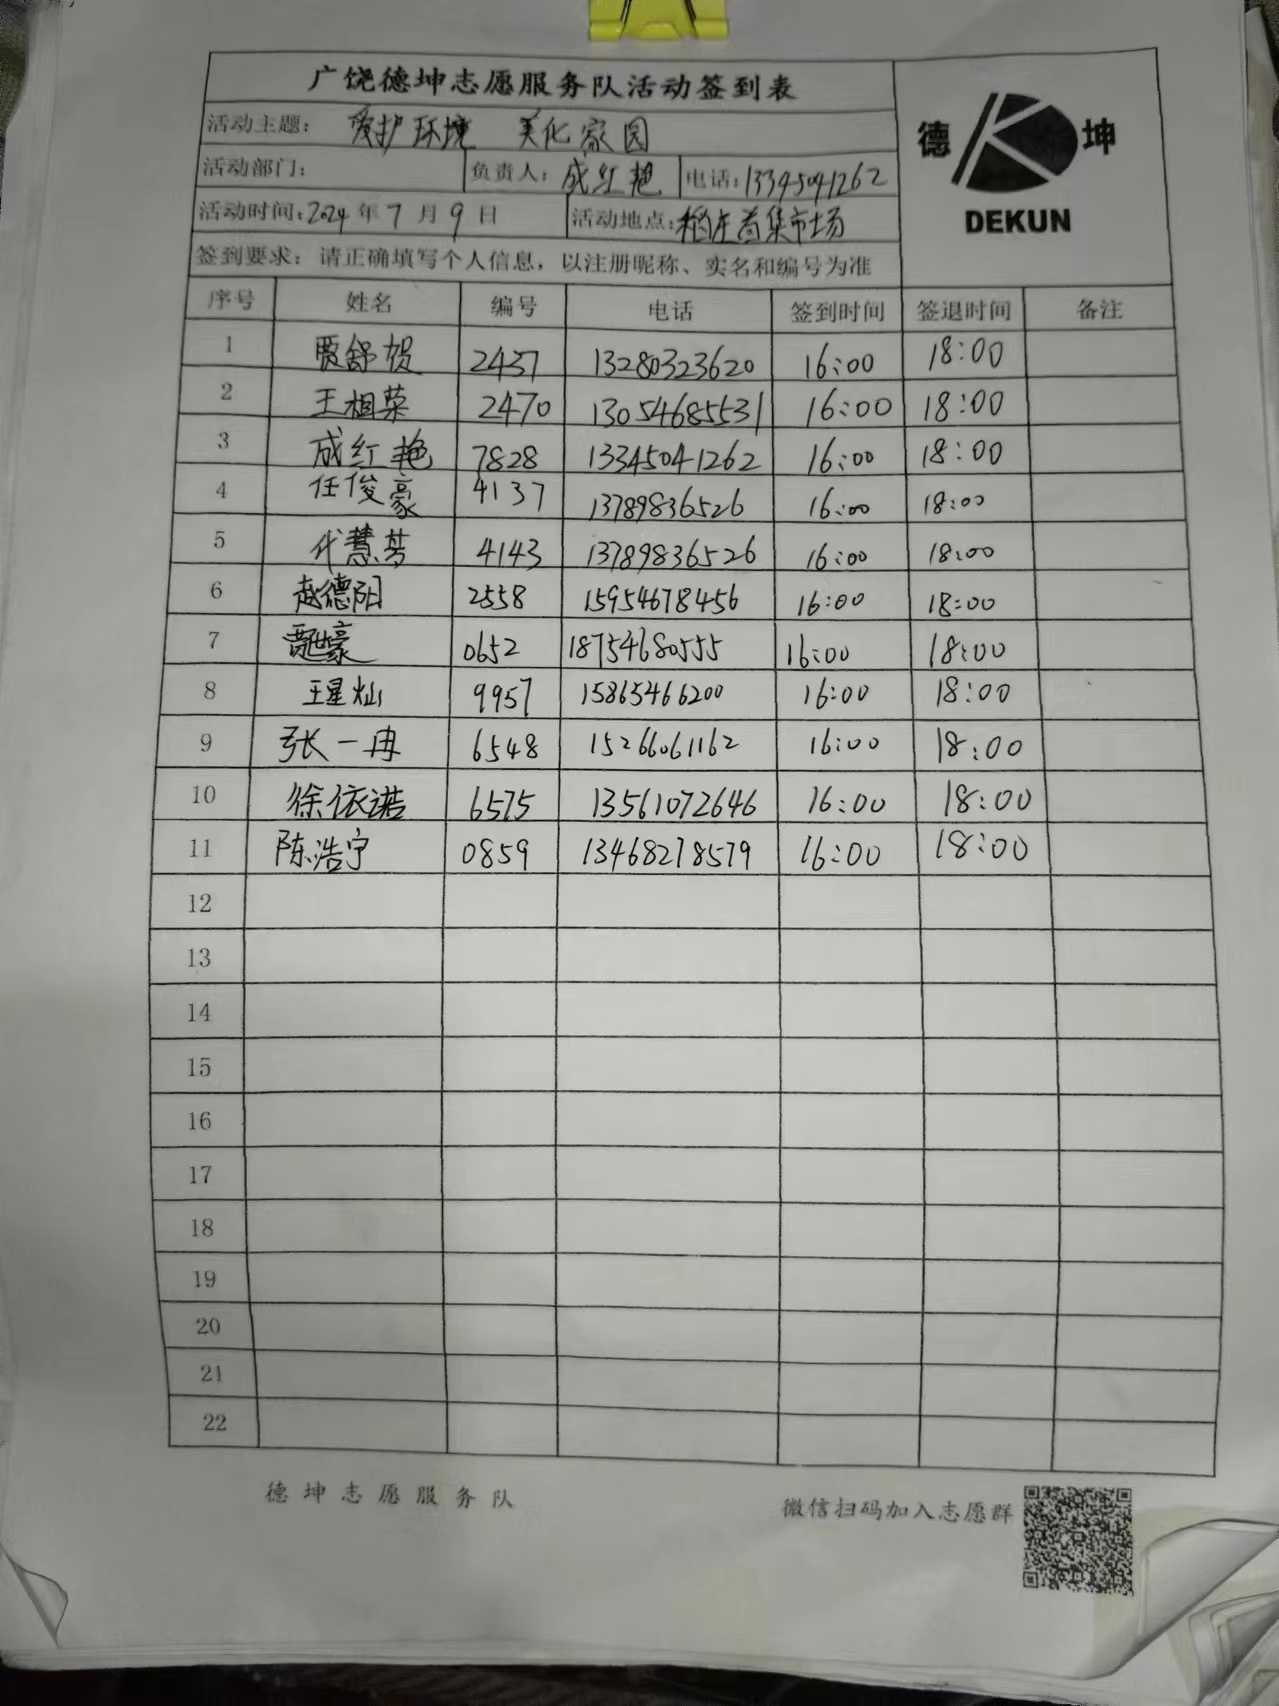 广饶德坤志愿服务队活动签到表
德 坤
DEKUN
活动主题： 爱护环境 美化家园
活动部门： 负责人：成红艳 电话：13345041262
活动时间：2024年7月9日 活动地点：稻庄首集市场
签到要求：请正确填写个人信息，以注册昵称、实名和编号为准
序号 姓名 编号 电话 签到时间 签退时间 备注
1 贾舒贺 2437 13280323620 16:00 18:00
2 王相荣 2470 13054685531 16:00 18:00
3 成红艳 7828 13345041262 16:00 18:00
4 任俊豪 4137 13789836526 16:00 18:00
5 代慧芳 4143 13789836526 16:00 18:00
6 赵德阳 2558 15954678456 16:00 18:00
7 0652 18754680555 16:00 18:00
8 王星灿 9957 15865466200 16:00 18:00
9 张一冉 6548 15266061162 16:00 18:00
10 徐依诺 6575 13561072646 16:00 18:00
11 陈浩宁 0859 13468278579 16:00 18:00
12
13
14
15
16
17
18
19
20
21
22
德坤志愿服务队 微信扫码加入志愿群